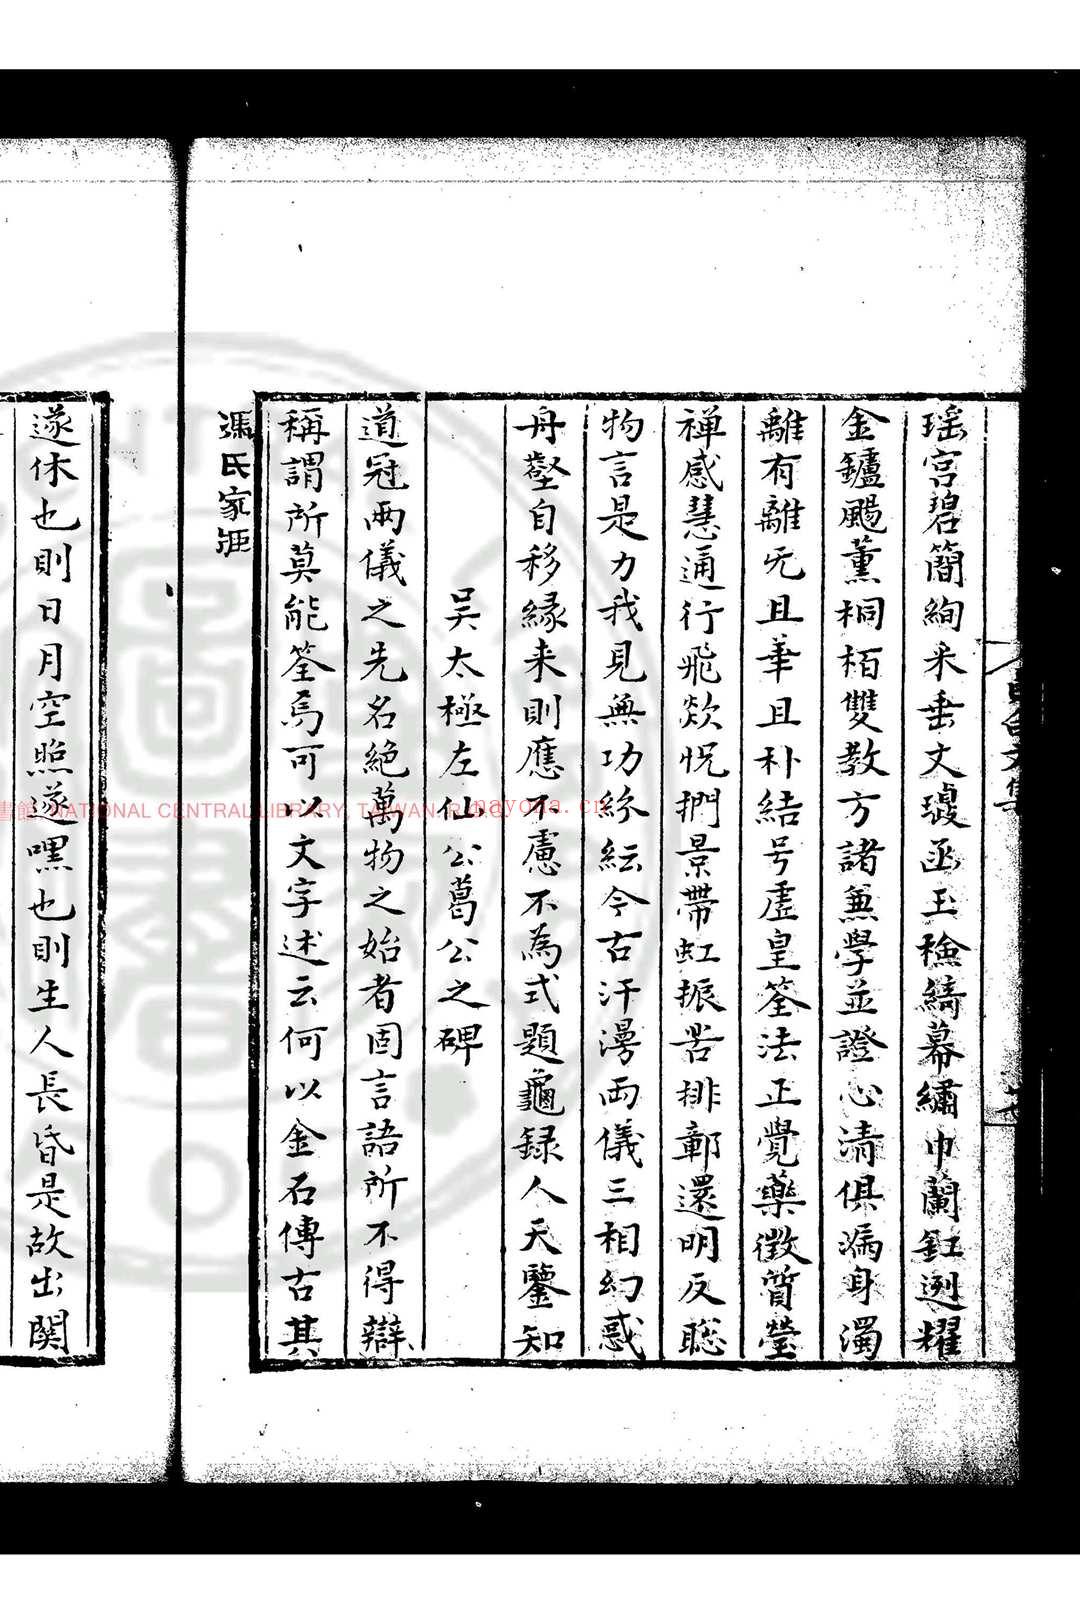 瑤宮碧簡絢采垂文瑴函玉檢綺幕繡巾蘭釭迾耀
金鑪颺薰桐栢雙教方諸無學並證心清俱漏身濁
離有離无且華且朴結号虛皇筌法正覺藥徵質瑩
禅感慧通行飛欻怳捫景帶虹振苦排鄣還明反聡
物言是力我見無功紛紜今古汗漫两儀三相幻惑
舟壑自移緣来則應不慮不為式題龜録人天鑒知
吴太極左仙公葛公之碑
道冠两儀之先名絶萬物之始者固言語所不得辯
稱謂所莫能筌焉可以文字述云何以金石傳古其
馮氏家
遂休也則日月空照遂嘿也則生人長昏是故出関
NATIONAL CENTRAL LIBRARY, TAIWAN, R
nayona.cn